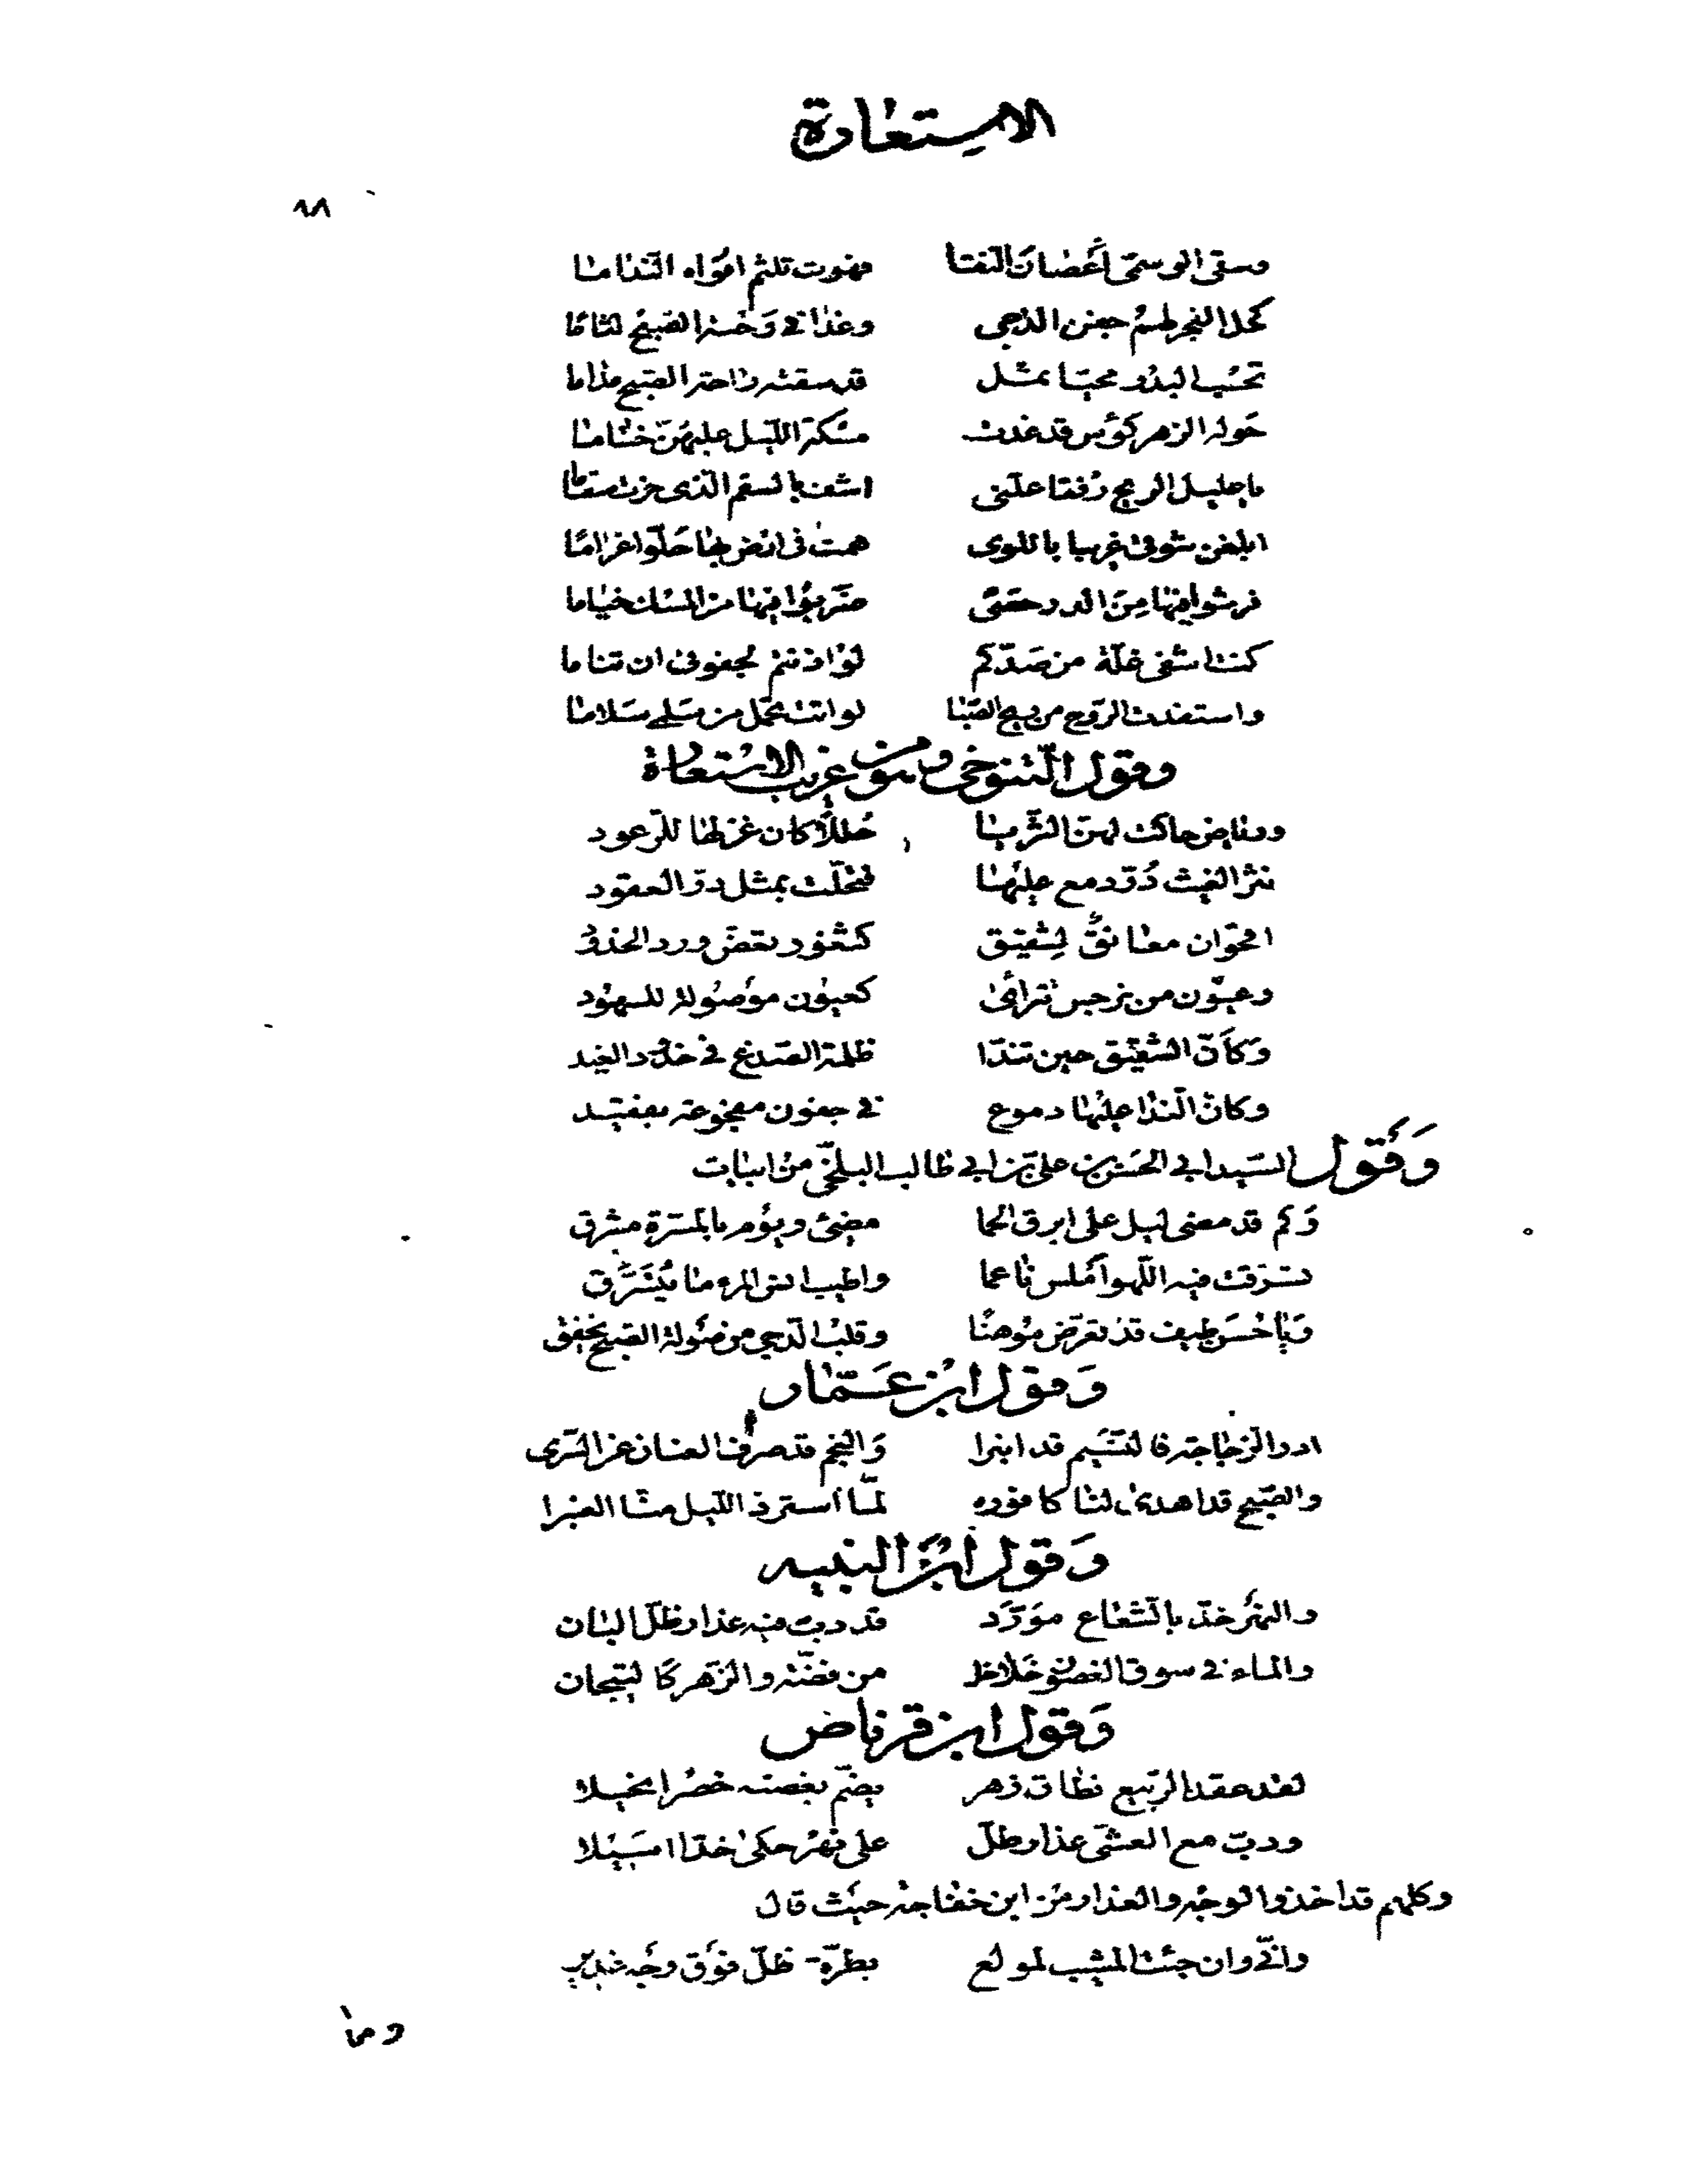 الاستعارة
٩٨
وسقى الوسمي أغصان النقا فهوت تلثم افواه النداما
كحل الفجر لهم جفن الدجى وغدا في وجنة الصبح لثاما
تحسب البدر محيا ثمل قد سقته راحة الصبح مداما
حوله الزهر كؤس قد غدت مسكة الليل عليهن ختاما
يا عليل الريح رفقا علني اشف بالسقم الذي حزت سقاما
ابلغن شوقي غريبا باللوى همت في ارض بها حلوا غراما
فرشوا فيها من الدر حصى ضربوا فيها من المسك خياما
كنت اشفي غلة من صدكم لو اذنتم لجفوني ان تناما
واستفدت الروح من ريح الصبا لو اتت تحمل من سلمى سلاما
وقول التنوخي وهو من غريب الاستعارة
ورياض حاكت لهن الثريا حللا كان غزلها للرعود
نثر الغيث در دمع عليها فتحلت بمثل در العقود
اقحوان معانق لشقيق كثغور تعض ورد الخدود
وعيون من نرجس تترائى كعيون موصولة للسهود
وكأن الشقيق حين تبدا ظلمة الصدغ في خدود الغيد
وكان الندا عليها دموع في جفون مفجوعة بفقيد
وقول السيد ابي الحسن بن علي بن ابي طالب البلخي من ابيات
وكم قد مضى ليل على ابرق الحما مضيئ ويوم بالمسرة مشرق
تسرقت فيه اللهو أملس ناعما واطيب انس المرء ما يتسرق
ويا حسن طيف قد تعرض موهنا وقلب الدجى من صولة الصبح يخفق
وقول ابن عمار
ادر الزجاجة فالنسيم قد انبرا والنجم قد صرف العنان عن السرى
والصبح قد اهدى لنا كافوره لما استرد الليل منا العنبرا
وقول ابن النبيه
والنهر خد بالشعاع مورد قد دب فيه عذار ظل البان
والماء في سوق الغصون خلاخل من فضة والزهر كالتيجان
وقول ابن قرناص
لقد عقد الربيع نطاق زهر يضم بغصنه خصرا نحيلا
ودب مع العشي عذار ظل على نهر حكى خدا اسيلا
وكلهم قد اخذوا الوجه والعذار من ابن خفاجة حيث قال
واني وان جئت المشيب لمولع بطرة ظل فوق وجه غدير
وما